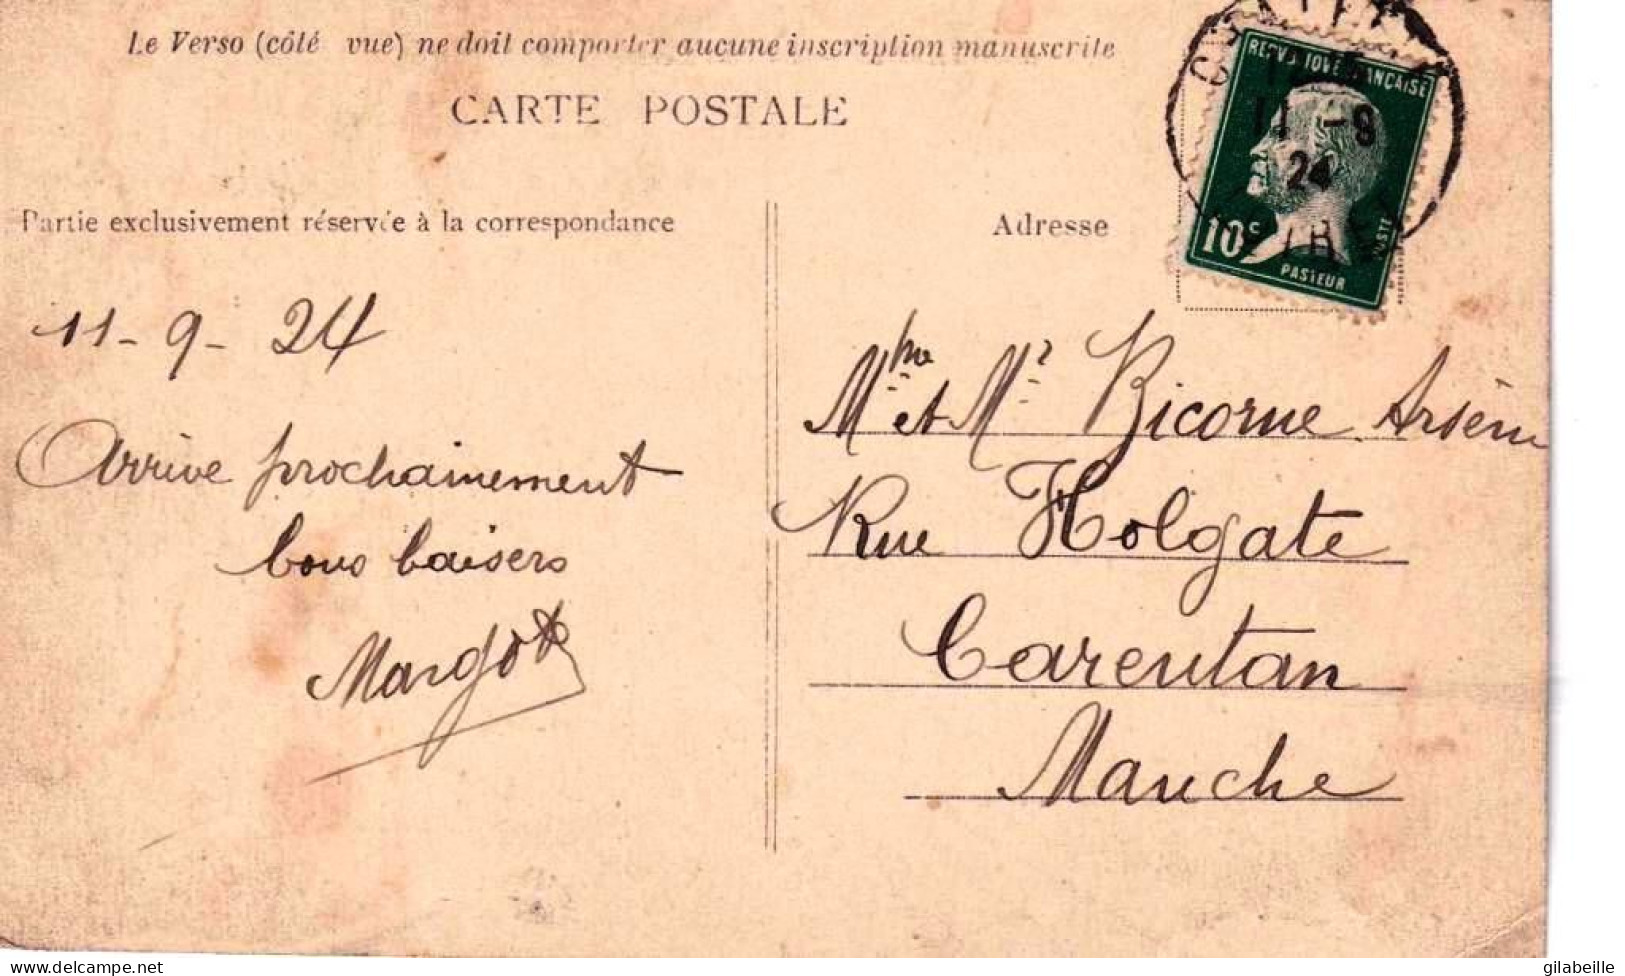 Le Verso (côté vue) ne doit comporter aucune inscription manuscrite
CARTE POSTALE
REPUBLIQUE FRANÇAISE
11 -9
24
10c
POSTES
PASTEUR
Partie exclusivement réservée à la correspondance
Adresse
11-9-24
Arrive prochainement
bons baisers
Margot
Mme et Mr Bicorne Arsène
Rue Holgate
Carentan
Manche
delcampe.net
gilabeille